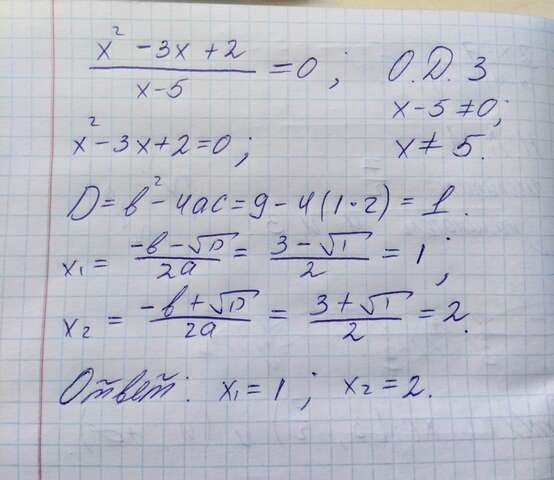 (x² - 3x + 2)/(x - 5) = 0 ; О.Д.З
x - 5 ≠ 0;
x² - 3x + 2 = 0 ; x ≠ 5.
D = b² - 4ac = 9 - 4(1·2) = 1.
x₁ = (-b - √D)/2a = (3 - √1)/2 = 1 ;
x₂ = (-b + √D)/2a = (3 + √1)/2 = 2.
Ответ: x₁ = 1 ; x₂ = 2.